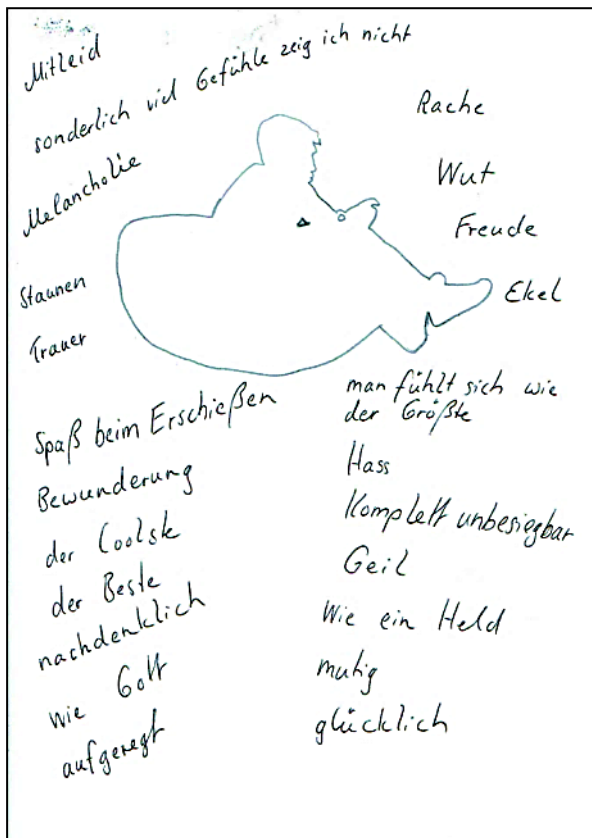 Mitleid
sonderlich viel Gefühle zeig ich nicht
Melancholie
Staunen
Trauer
Rache
Wut
Freude
Ekel
Spaß beim Erschießen
Bewunderung
der Coolste
der Beste
nachdenklich
wie Gott
aufgeregt
man fühlt sich wie
der Größte
Hass
Komplett unbesiegbar
Geil
Wie ein Held
mutig
glücklich